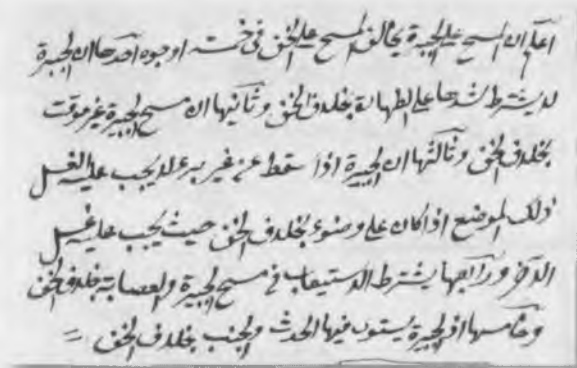 اعلم ان المسح على الجبيرة يخالف المسح على الخف في خمسة اوجوه احدها ان الجبيرة
لا يشترط شدها على الطهارة بخلاف الخف وثانيها ان مسح الجبيرة غير موقت
بخلاف الخف وثالثها ان الجبيرة اذا سقط عن غير برء لا يجب عليه الغسل
ذلك الموضع اذا كان على وضوء بخلاف الخف حيث يجب عليه غسل
الاخر ورابعها يشترط الاستيعاب في مسح الجبيرة والعصابة بخلاف الخف
وخامسها ان الجبيرة يستوى فيها الحدث والجنب بخلاف الخف